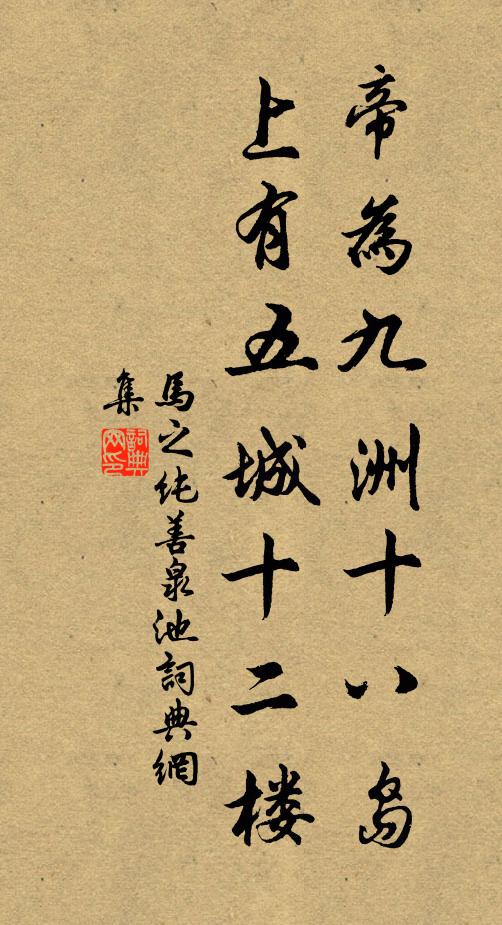 帝為九洲十八島
上有五城十二楼
馬之纯善泉池詞典網
集
詞典網印